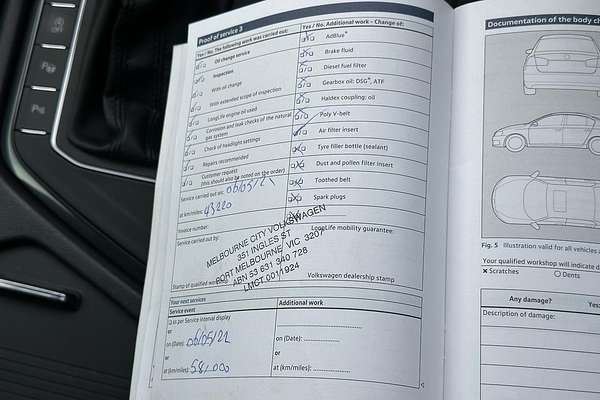 Proof of service 3
Yes / No, The following work was carried out:
Oil change service
Inspection
With oil change
With extended scope of inspection
LongLife engine oil used
Corrosion and leak checks of the natural
gas system
Check of headlight settings
Repairs recommended
Customer request
(this should also be noted on the order)
Service carried out on: 06/05/21
at km/miles: 43220
Invoice number:
Service carried out by:
MELBOURNE CITY VOLKSWAGEN
351 INGLES ST
PORT MELBOURNE, VIC 3207
ABN 33 631 340 728
LMCT 0011924
Stamp of qualified
Yes / No, Additional work – Change of:
AdBlue®
Brake fluid
Diesel fuel filter
Gearbox oil: DSG®, ATF
Haldex coupling: oil
Poly V-belt
Air filter insert
Tyre filler bottle (sealant)
Dust and pollen filter insert
Toothed belt
Spark plugs
LongLife mobility guarantee:
Volkswagen dealership stamp
Your next services
Service event
as per Service interval display
or
on (Date): 06/05/22
or
at (km/miles): 58,000
Additional work
on (Date):
or
at (km/miles):
Documentation of the body ch
Fig. 5 Illustration valid for all vehicles
Your qualified workshop will indicate d
× Scratches
○ Dents
Any damage?
Yes:
Description of damage: